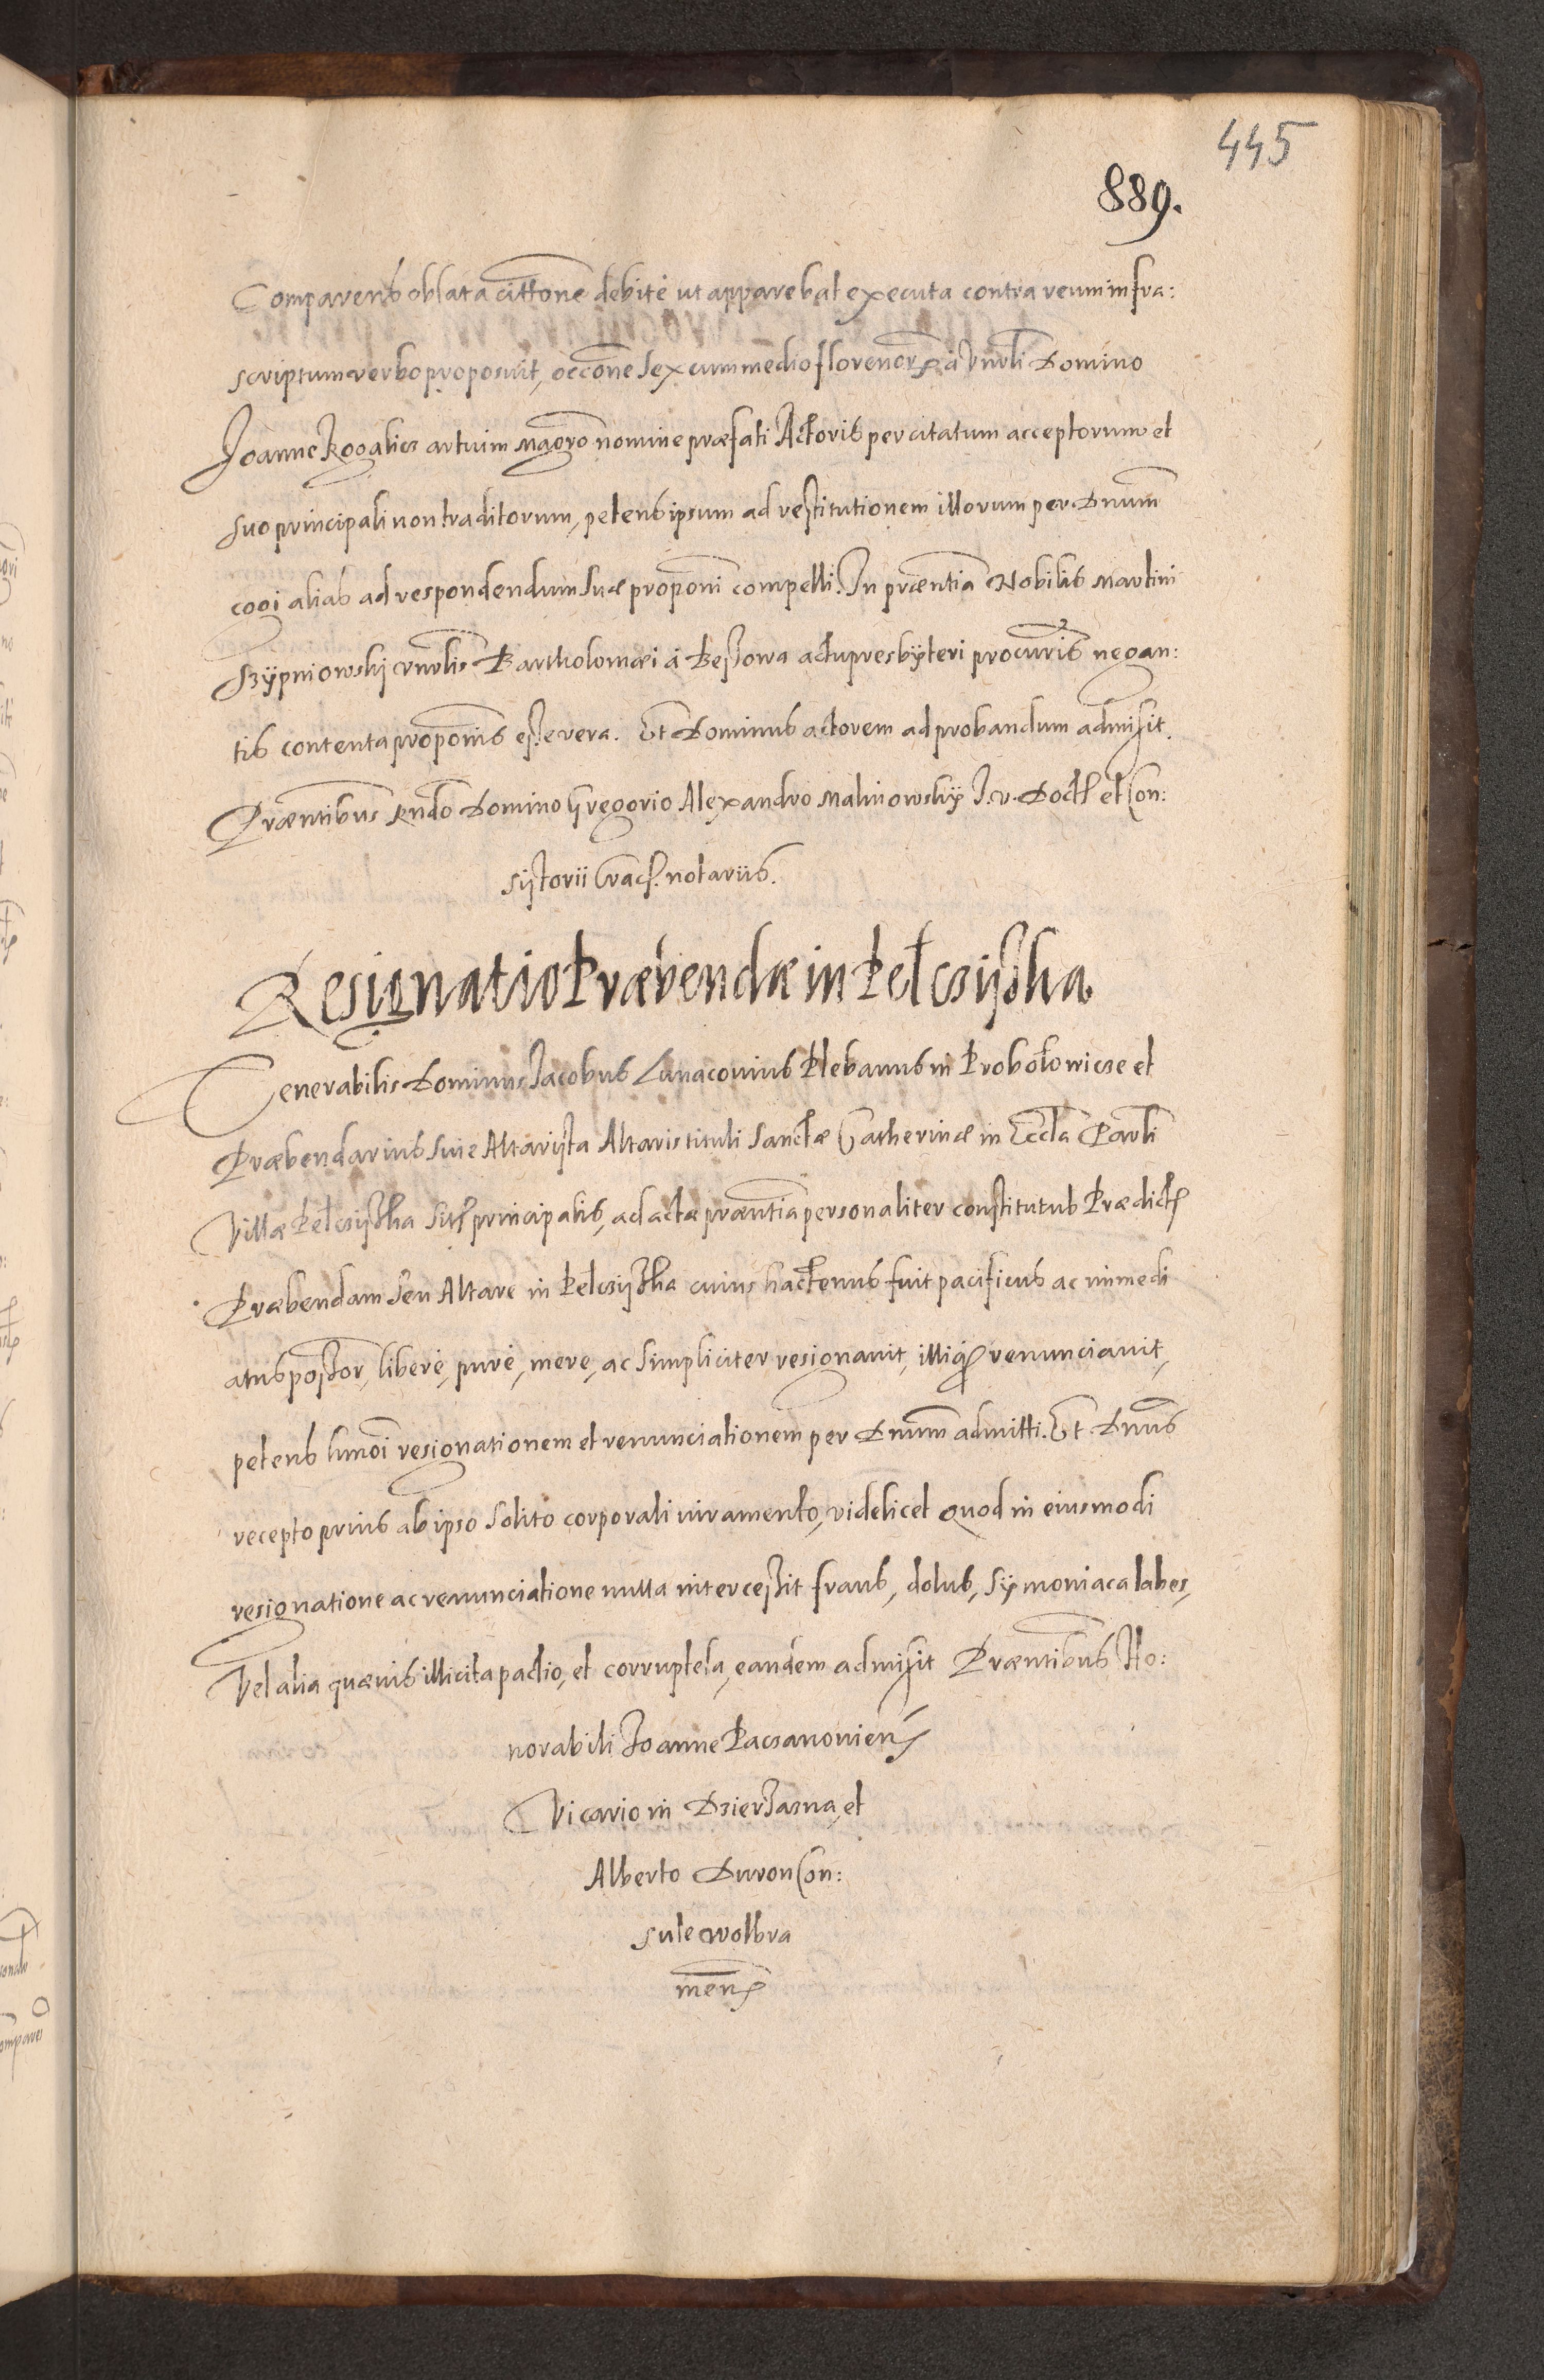 445
889.
Comparens oblata cittone debitè ut apparebat executa contra reum infra:
scriptum verbo proposuit, occone sex cum medio florenor à Vnrli Domino
Joanne Rogalicz artium magro nomine præfati Actoris per citatum acceptorum et
suo principali non traditorum, petens ipsum ad restitutionem illorum per Dnum
cogi alias ad respondendum suæ proponi compelli. In præntia Nobilis Martini
Szÿpniowskij Vnrlis Bartholomæi à Bessowa actu presbyteri procuris negan:
tis contenta proponis esse vera. Et Dominus actorem ad probandum admisit.
Præntibus Rndo Domino Gregorio Alexandro Malinowskÿ J.v. Doct et Con:
sistorii Crac. notariis.
Resignatio Præbendæ in Pełczÿska.
Venerabilis Dominus Jacobus Lunacovius Plebanus in Probołowicze et
Præbendarius sive Altarista Altaris tituli Sanctæ Catherinæ in Eccla Parli
Villæ Pełczÿska sit principalis, ad acta præntia personaliter constitutus Prædict
Præbendam seu Altare in Pełczÿska cuius hactenus fuit pacificus ac immedi
atus possor, liberè, purè, mere, ac simpliciter resignavit, illiq renunciavit,
petens hmoi resignationem et renunciationem per Dnum admitti. Et Dnus
recepto prius ab ipso solito corporali iuramento, videlicet quod in eiusmodi
resignatione ac renunciatione nulla intercessit fraus, dolus, sÿmoniaca labes,
Vel alia quævis illicita pactio, et corruptela, eandem admisit Præntibus Ho:
norabili Joanne Paczanovien
Vicario in Dzierzazna, et
Alberto Duron Con:
sule Wolbra
men